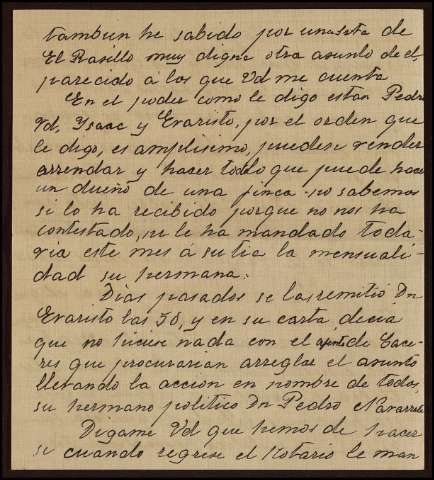 tambien he sabido por una carta de
El Rasillo muy digna otra asunto de el,
parecido á los que Vd me cuenta
En el poder como le digo estan Pedro
Vd, Ysaac y Evaristo, por el orden que
le digo, es amplisimo, puedese vender
arrendar y hacer todo lo que puede hacer
un dueño de una finca no sabemos
si lo ha recibido porque no nos ha
contestado, ni le ha mandado toda-
via este mes á su tia la mensuali-
dad su hermana.
Dias pasados se las remitió Dn
Evaristo las 50, y en su carta, decia
que no hiciese nada con el de Cace-
res que procurarian arreglar el asunto
llevando la accion en nombre de todos,
su hermano politico Dn Pedro Navarrete
Digame Vd que hemos de hacer
si cuando regrese el Notario le man